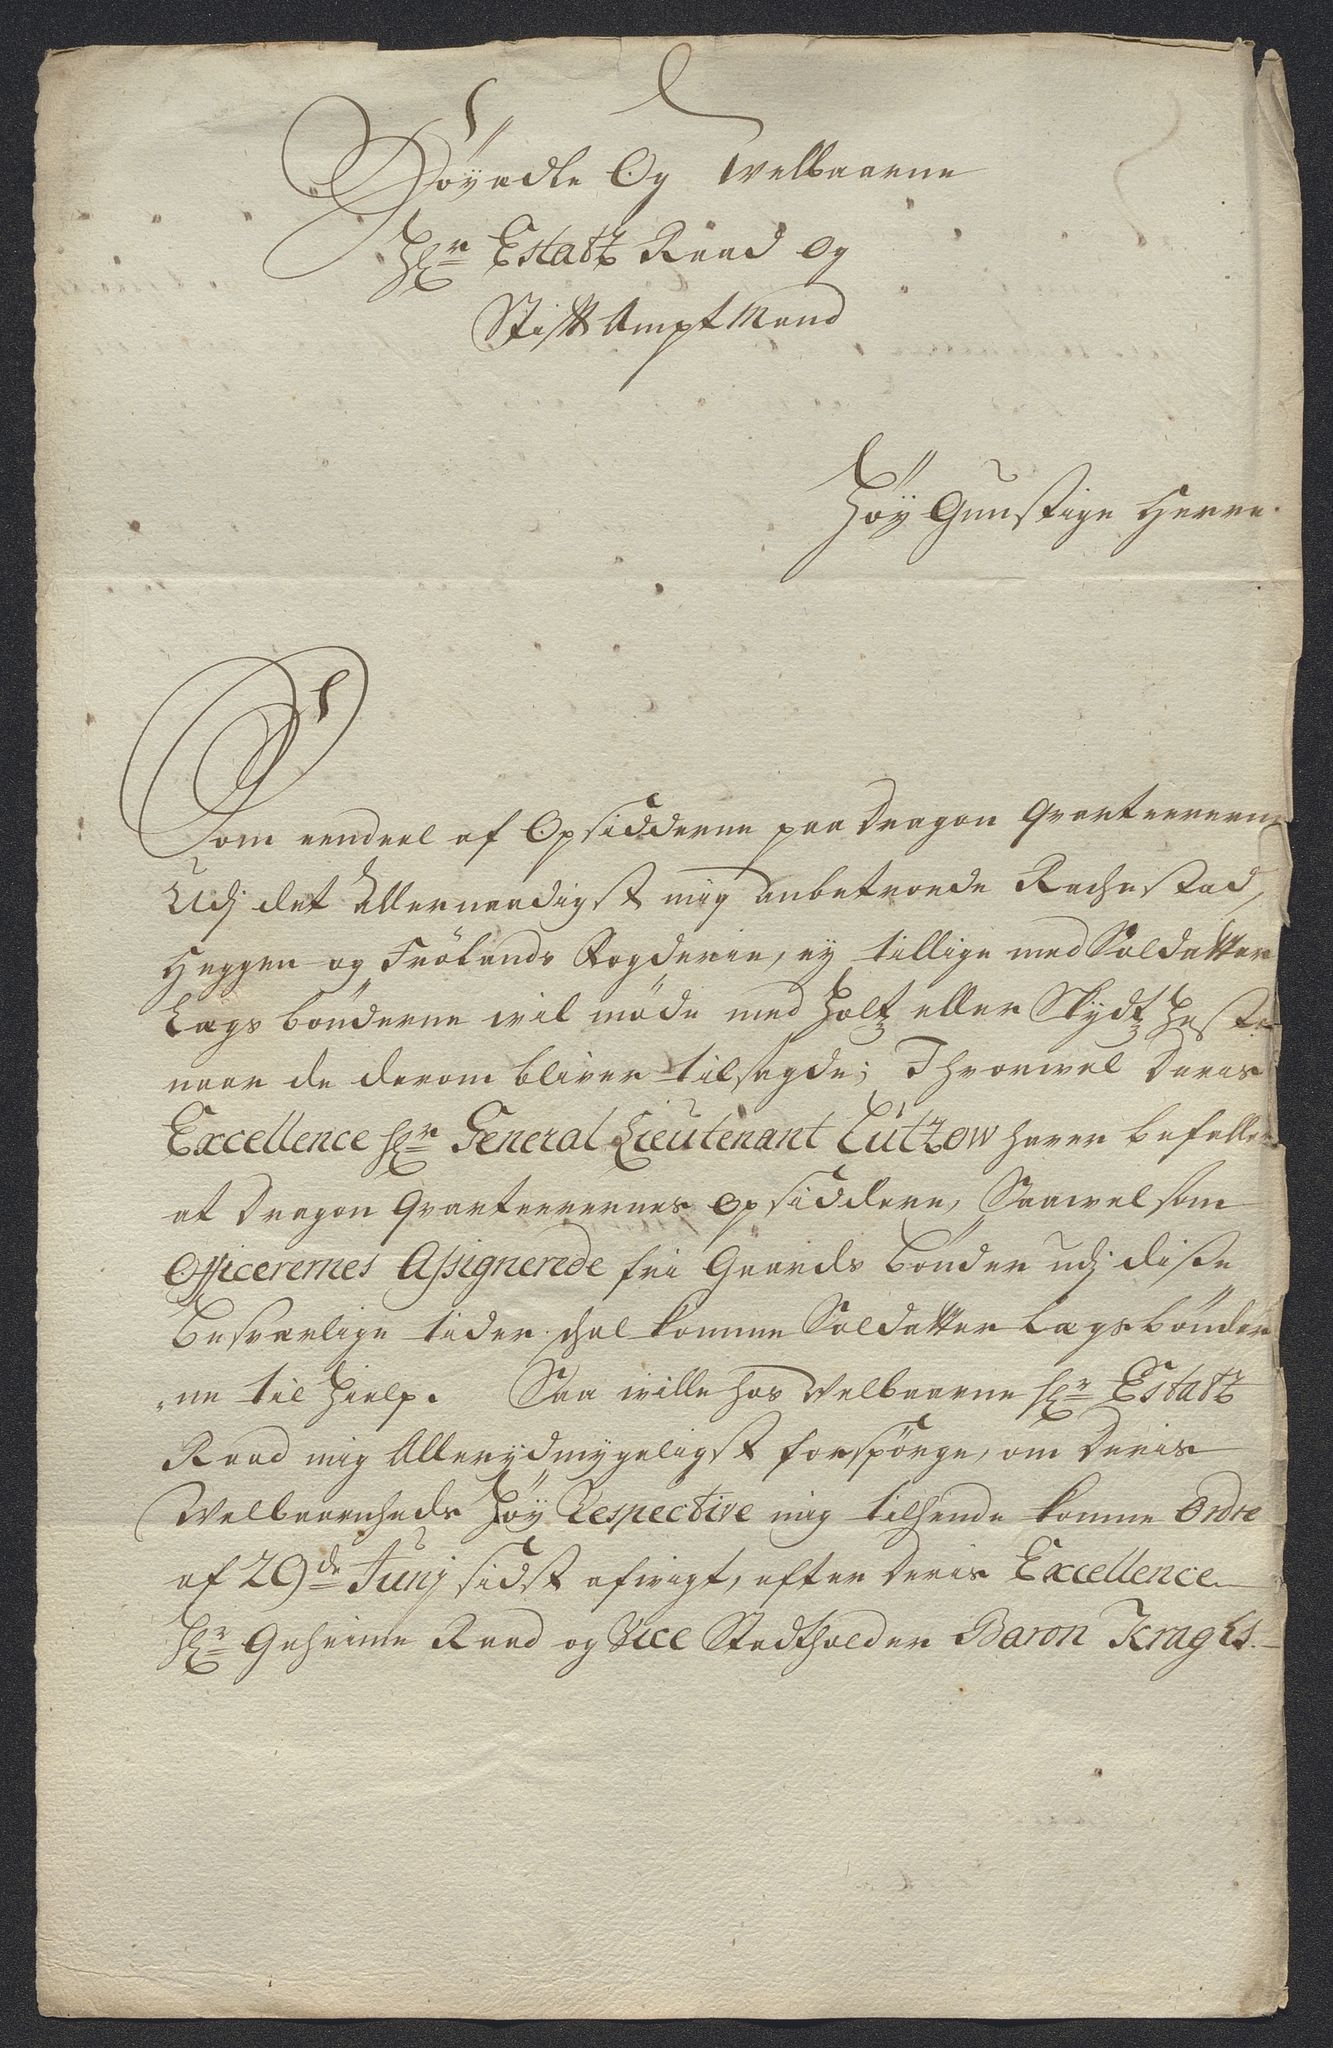 Høyædle Og Welbaarne
Hr Estatz Raad Og
Stift Ampt Mand
Høy Gunstige Herre.
Som eendeel af Opsidderne paa Dragon Qvarteererne
Udj det Allernaadigst mig anbetroede Rachestad,
Heggen og Frølands Fogderie, ey tillige med Soldatter
Lægs bønderne wil møde med Holtz eller Skydtz Heste
naar de derom bliver tilsagde; Ihvorwel Deris
Excellence Hr General Lieutenant Lützow haver befallet
at Dragon Qvarteerernes Opsiddere, Saawelsom
Officerernes Assignerede fri Gaards Bønder udj disse
besværlige tider skal komme Soldatter Lægs bønder
„ne til Hielp. Saa wille hos Welbaarne Hr Estatz
Raad mig Allerydmygeligst forspørge, om Deris
Welbaarenheds Høy Respective mig tilhende komne Ordre
af 29de Junj sidst afvigt, efter Deris Excellence
Hr Geheime Raad og Vice Stadtholder Baron Krag Es.